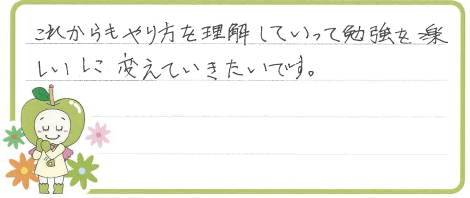 これからもやり方を理解していって勉強を楽
しいに変えていきたいです。